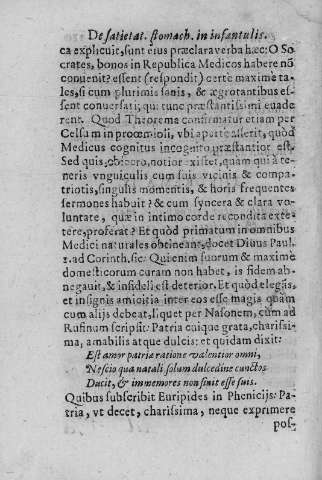 De satietat. stomach. in infantulis.
ca explicuit, sunt eius præclara verba hæc: O So
crates, bonos in Republica Medicos habere nõ
conuenit? essent (respondit) certè maximè ta-
les, si cum plurimis sanis, & ægrotantibus es-
sent conuersati; qui tunc præstantissimi euade
rent. Quod Theorema confirmatur etiam per
Celsum in prooemioli, vbi apertè asserit, quòd
Medicus cognitus incognito præstantior est.
Sed quis, obsecro, notior existet, quàm qui à te-
neris vnguiculis cum suis vicinis & compa-
triotis, singulis momentis, & horis frequentes
sermones habuit? & cum syncera & clara vo-
luntate, quæ in intimo corde recondita exte-
tere, proferat? Et quòd primatum in omnibus
Medici naturales obtineant, docet Diuus Paul.
1. ad Corinth. sic: Qui enim suorum & maximè
domesticorum curam non habet, is fidem ab-
negauit, & infideli est deterior. Et quòd elegãs,
et insignis amicitia inter eos esse magis quàm
cum alijs debeat, liquet per Nasonem, cum ad
Rufinum scripsit: Patria cuique grata, charissi-
ma, amabilis atque dulcis: et quidam dixit:
Est amor patriæ ratione valentior omni,
Nescio qua natali solum dulcedine cunctos
Ducit, & immemores non sinit esse suis.
Quibus subscribit Euripides in Phenicijs: Pa-
tria, vt decet, charissima, neque exprimere
pos-